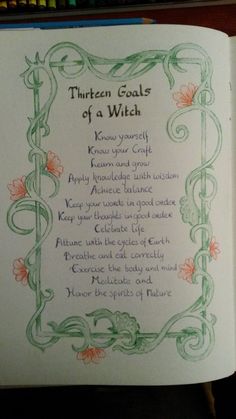 Thirteen Goals
of a Witch
Know yourself
Know your Craft
Learn and grow
Apply knowledge with wisdom
Achieve balance
Keep your words in good order
Keep your thoughts in good order
Celebrate life
Attune with the cycles of Earth
Breathe and eat correctly
Exercise the body and mind
Meditate and
Honor the spirits of Nature